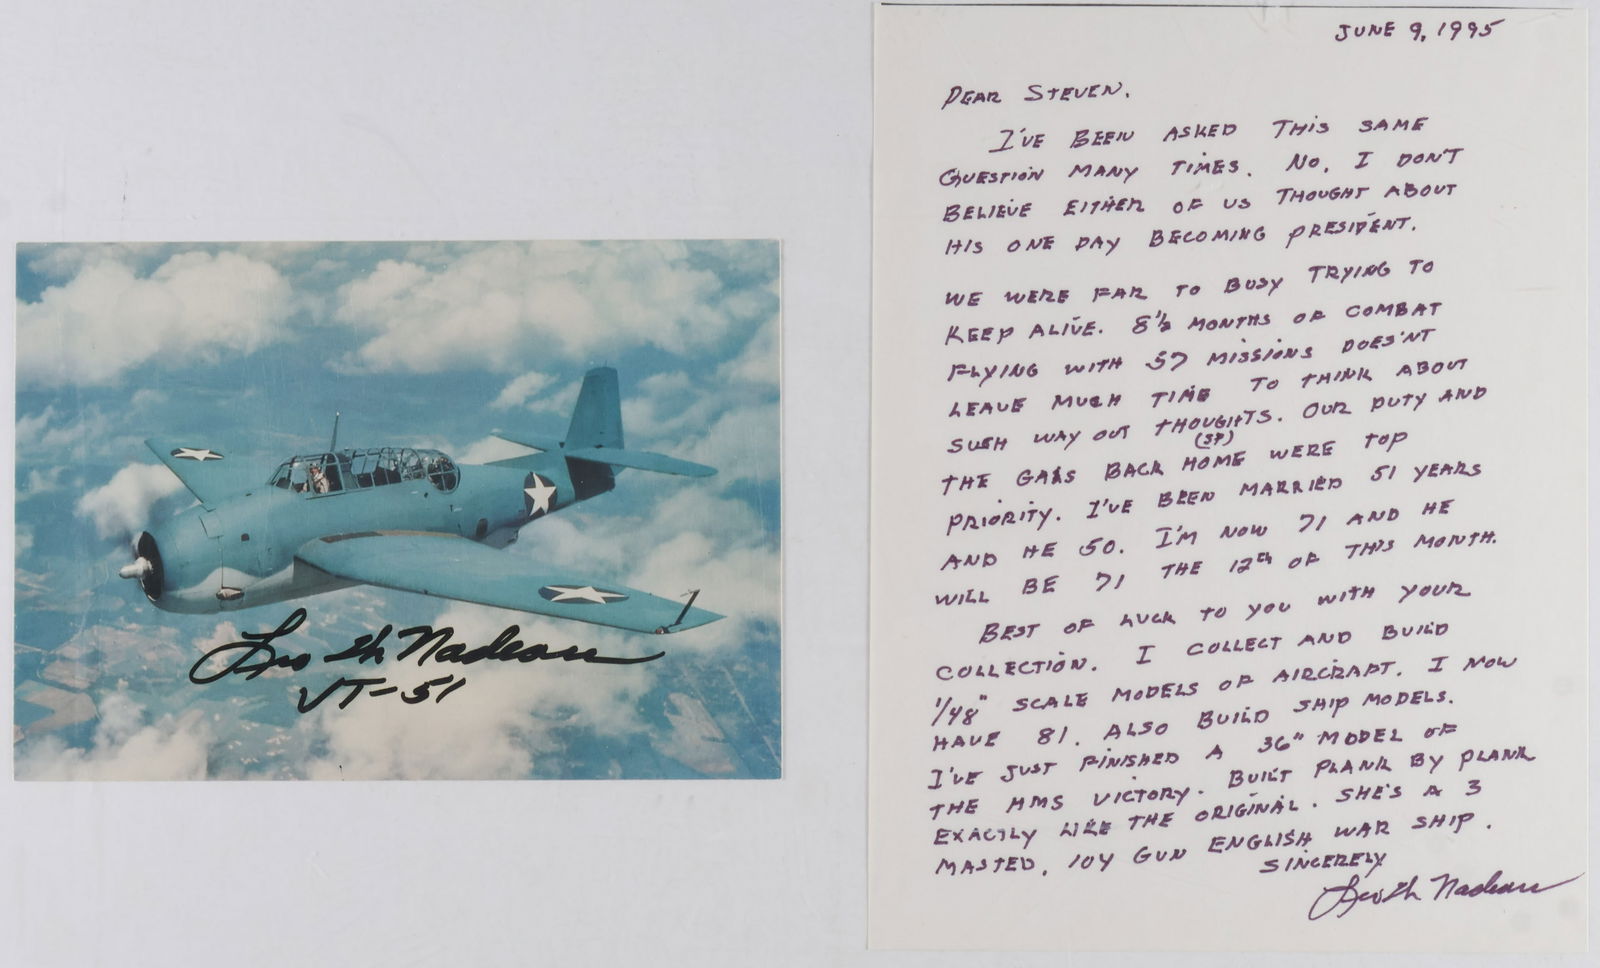 Leo W Nadeau
VT-51
JUNE 9, 1995
DEAR STEVEN.
I'VE BEEN ASKED THIS SAME
QUESTION MANY TIMES. NO, I DON'T
BELIEVE EITHER OF US THOUGHT ABOUT
HIS ONE DAY BECOMING PRESIDENT.
WE WERE FAR TO BUSY TRYING TO
KEEP ALIVE. 8½ MONTHS OF COMBAT
FLYING WITH 57 MISSIONS DOES'NT
LEAVE MUCH TIME TO THINK ABOUT
SUCH WAY OUT THOUGHTS. OUR DUTY AND
(SP)
THE GALS BACK HOME WERE TOP
PRIORITY. I'VE BEEN MARRIED 51 YEARS
AND HE 50. I'M NOW 71 AND HE
WILL BE 71 THE 12th OF THIS MONTH.
BEST OF LUCK TO YOU WITH YOUR
COLLECTION. I COLLECT AND BUILD
1/48" SCALE MODELS OF AIRCRAFT. I NOW
HAVE 81. ALSO BUILD SHIP MODELS.
I'VE JUST FINISHED A 36" MODEL OF
THE HMS VICTORY. BUILT PLANK BY PLANK
EXACTLY LIKE THE ORIGINAL. SHE'S A 3
MASTED, 104 GUN ENGLISH WAR SHIP.
SINCERELY
Leo W Nadeau